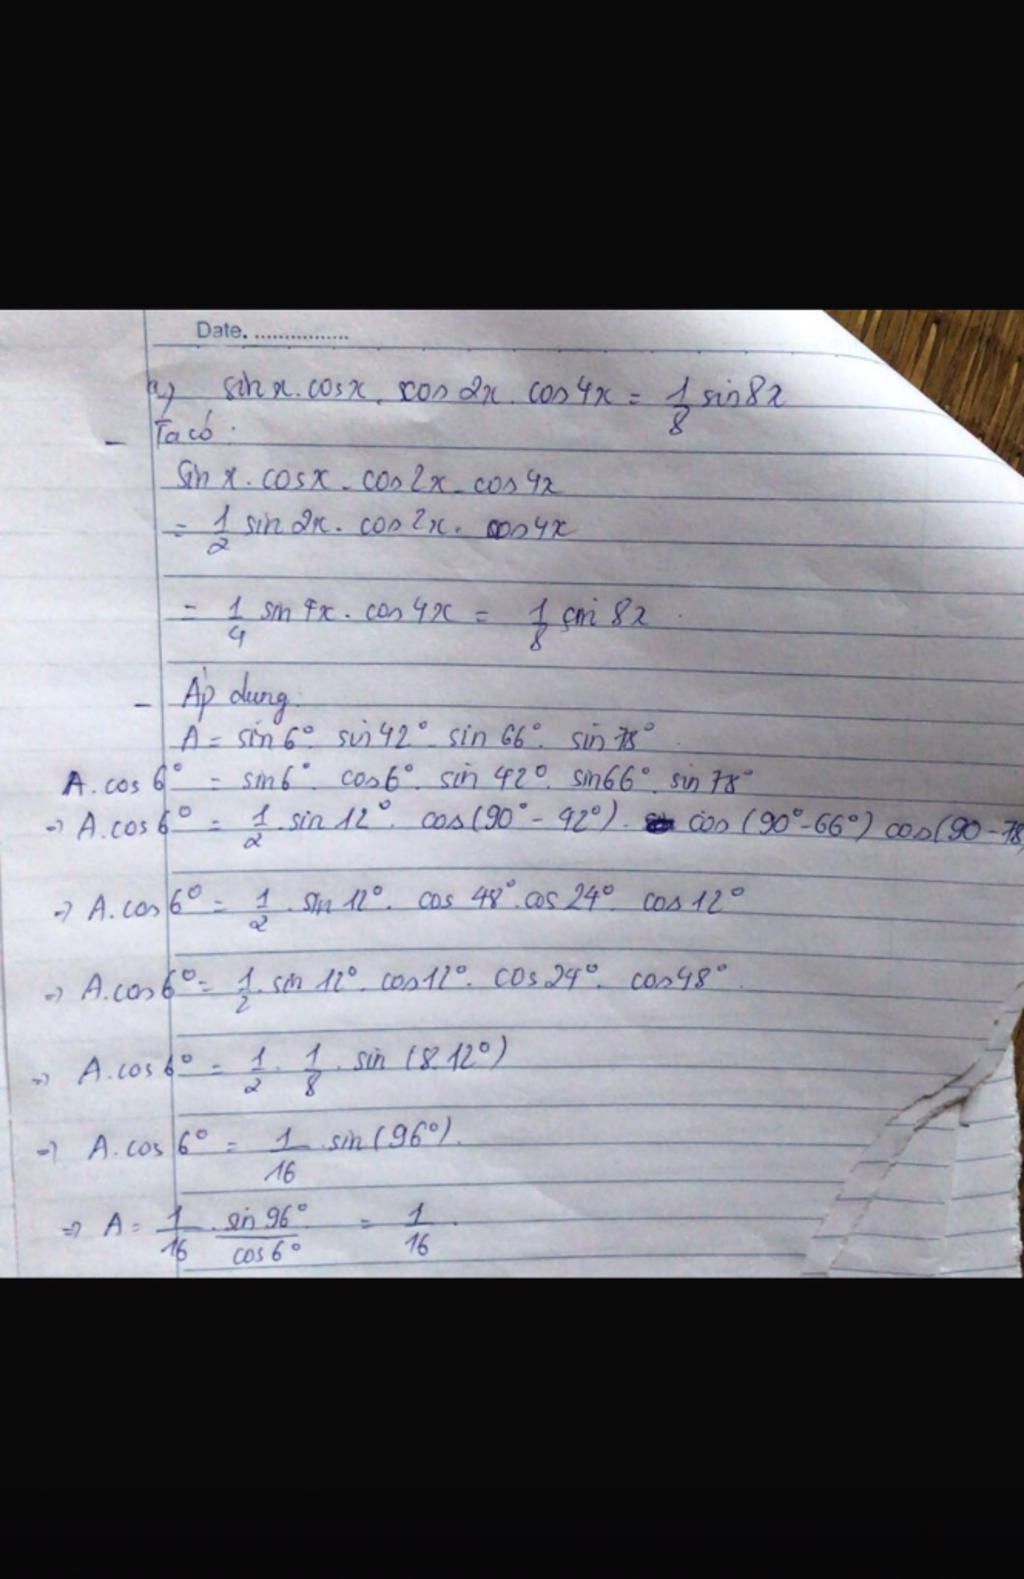 Date. ................
a) sin x. cosx. cos 2x. cos 4x = 1/8 sin 8x
- Ta có:
Sin x. cosx. cos 2x. cos 4x
= 1/2 sin 2x. cos 2x. cos 4x
= 1/4 sin 4x. cos 4x = 1/8 sin 8x.
- Áp dụng:
A = sin 6°. sin 42°. sin 66°. sin 78°.
A. cos 6° = sin 6°. cos 6°. sin 42°. sin 66°. sin 78°
=> A. cos 6° = 1/2. sin 12°. cos (90° - 42°). cos (90° - 66°) cos (90 - 78
=> A. cos 6° = 1/2. sin 12°. cos 48°. cos 24°. cos 12°
=> A. cos 6° = 1/2. sin 12°. cos 12°. cos 24°. cos 48°.
=> A. cos 6° = 1/2. 1/8. sin (8.12°)
=> A. cos 6° = 1/16. sin (96°).
=> A = 1/16. sin 96°/cos 6° = 1/16.